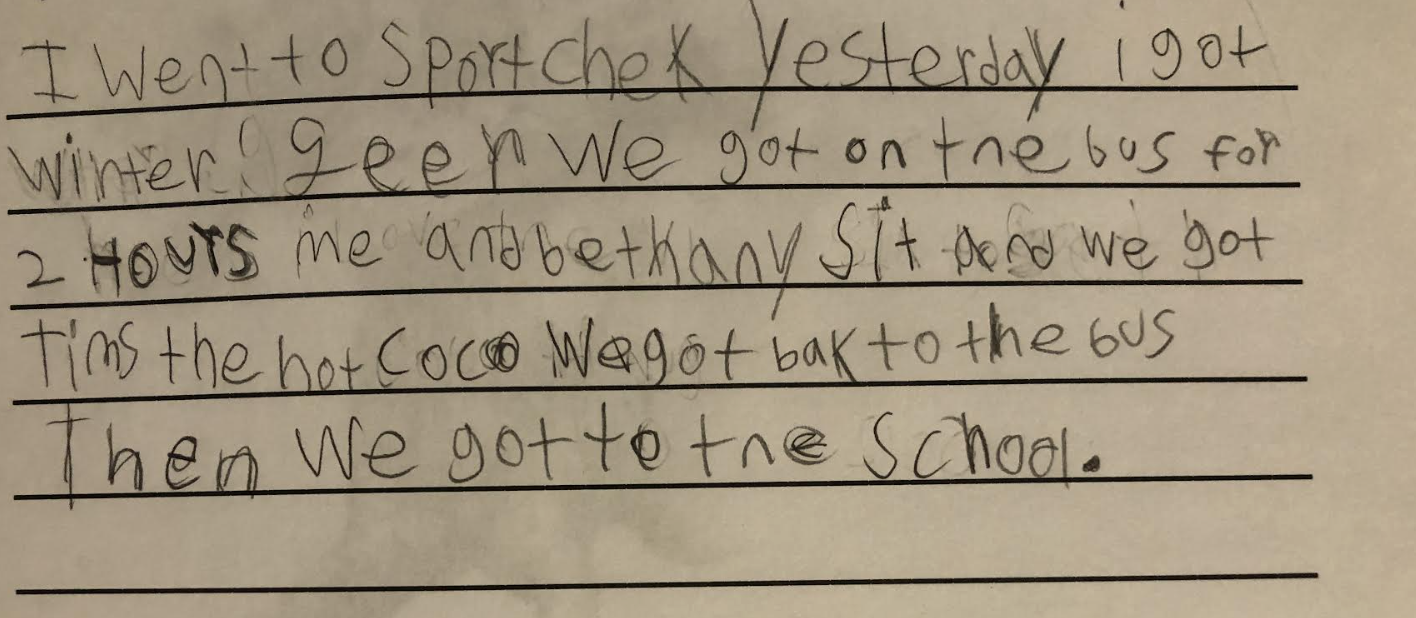 I went to Sportchek Yesterday i got
winter geer We got on tne bus for
2 HOURS me and bethany Sit and we got
Tims the hot Coco We got bak to the bus
Then We got to tne School.